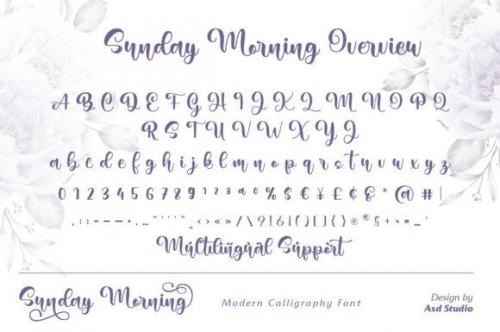 Sunday Morning Overview
A B C D E F G H I J K L M N O P Q
R S T U V W X Y Z
a b c d e f g h i j k l m n o p q r s t u v w x y z
0 1 2 3 4 5 6 7 8 9 1 2 3 a o % $ € ¥ £ ¢ & * @ # |
‹ › « » / \ ? ! ¿ ¡ ( ) [ ] { }
Multilingual Support
Sunday Morning
Modern Calligraphy Font
Design by
Asd Studio